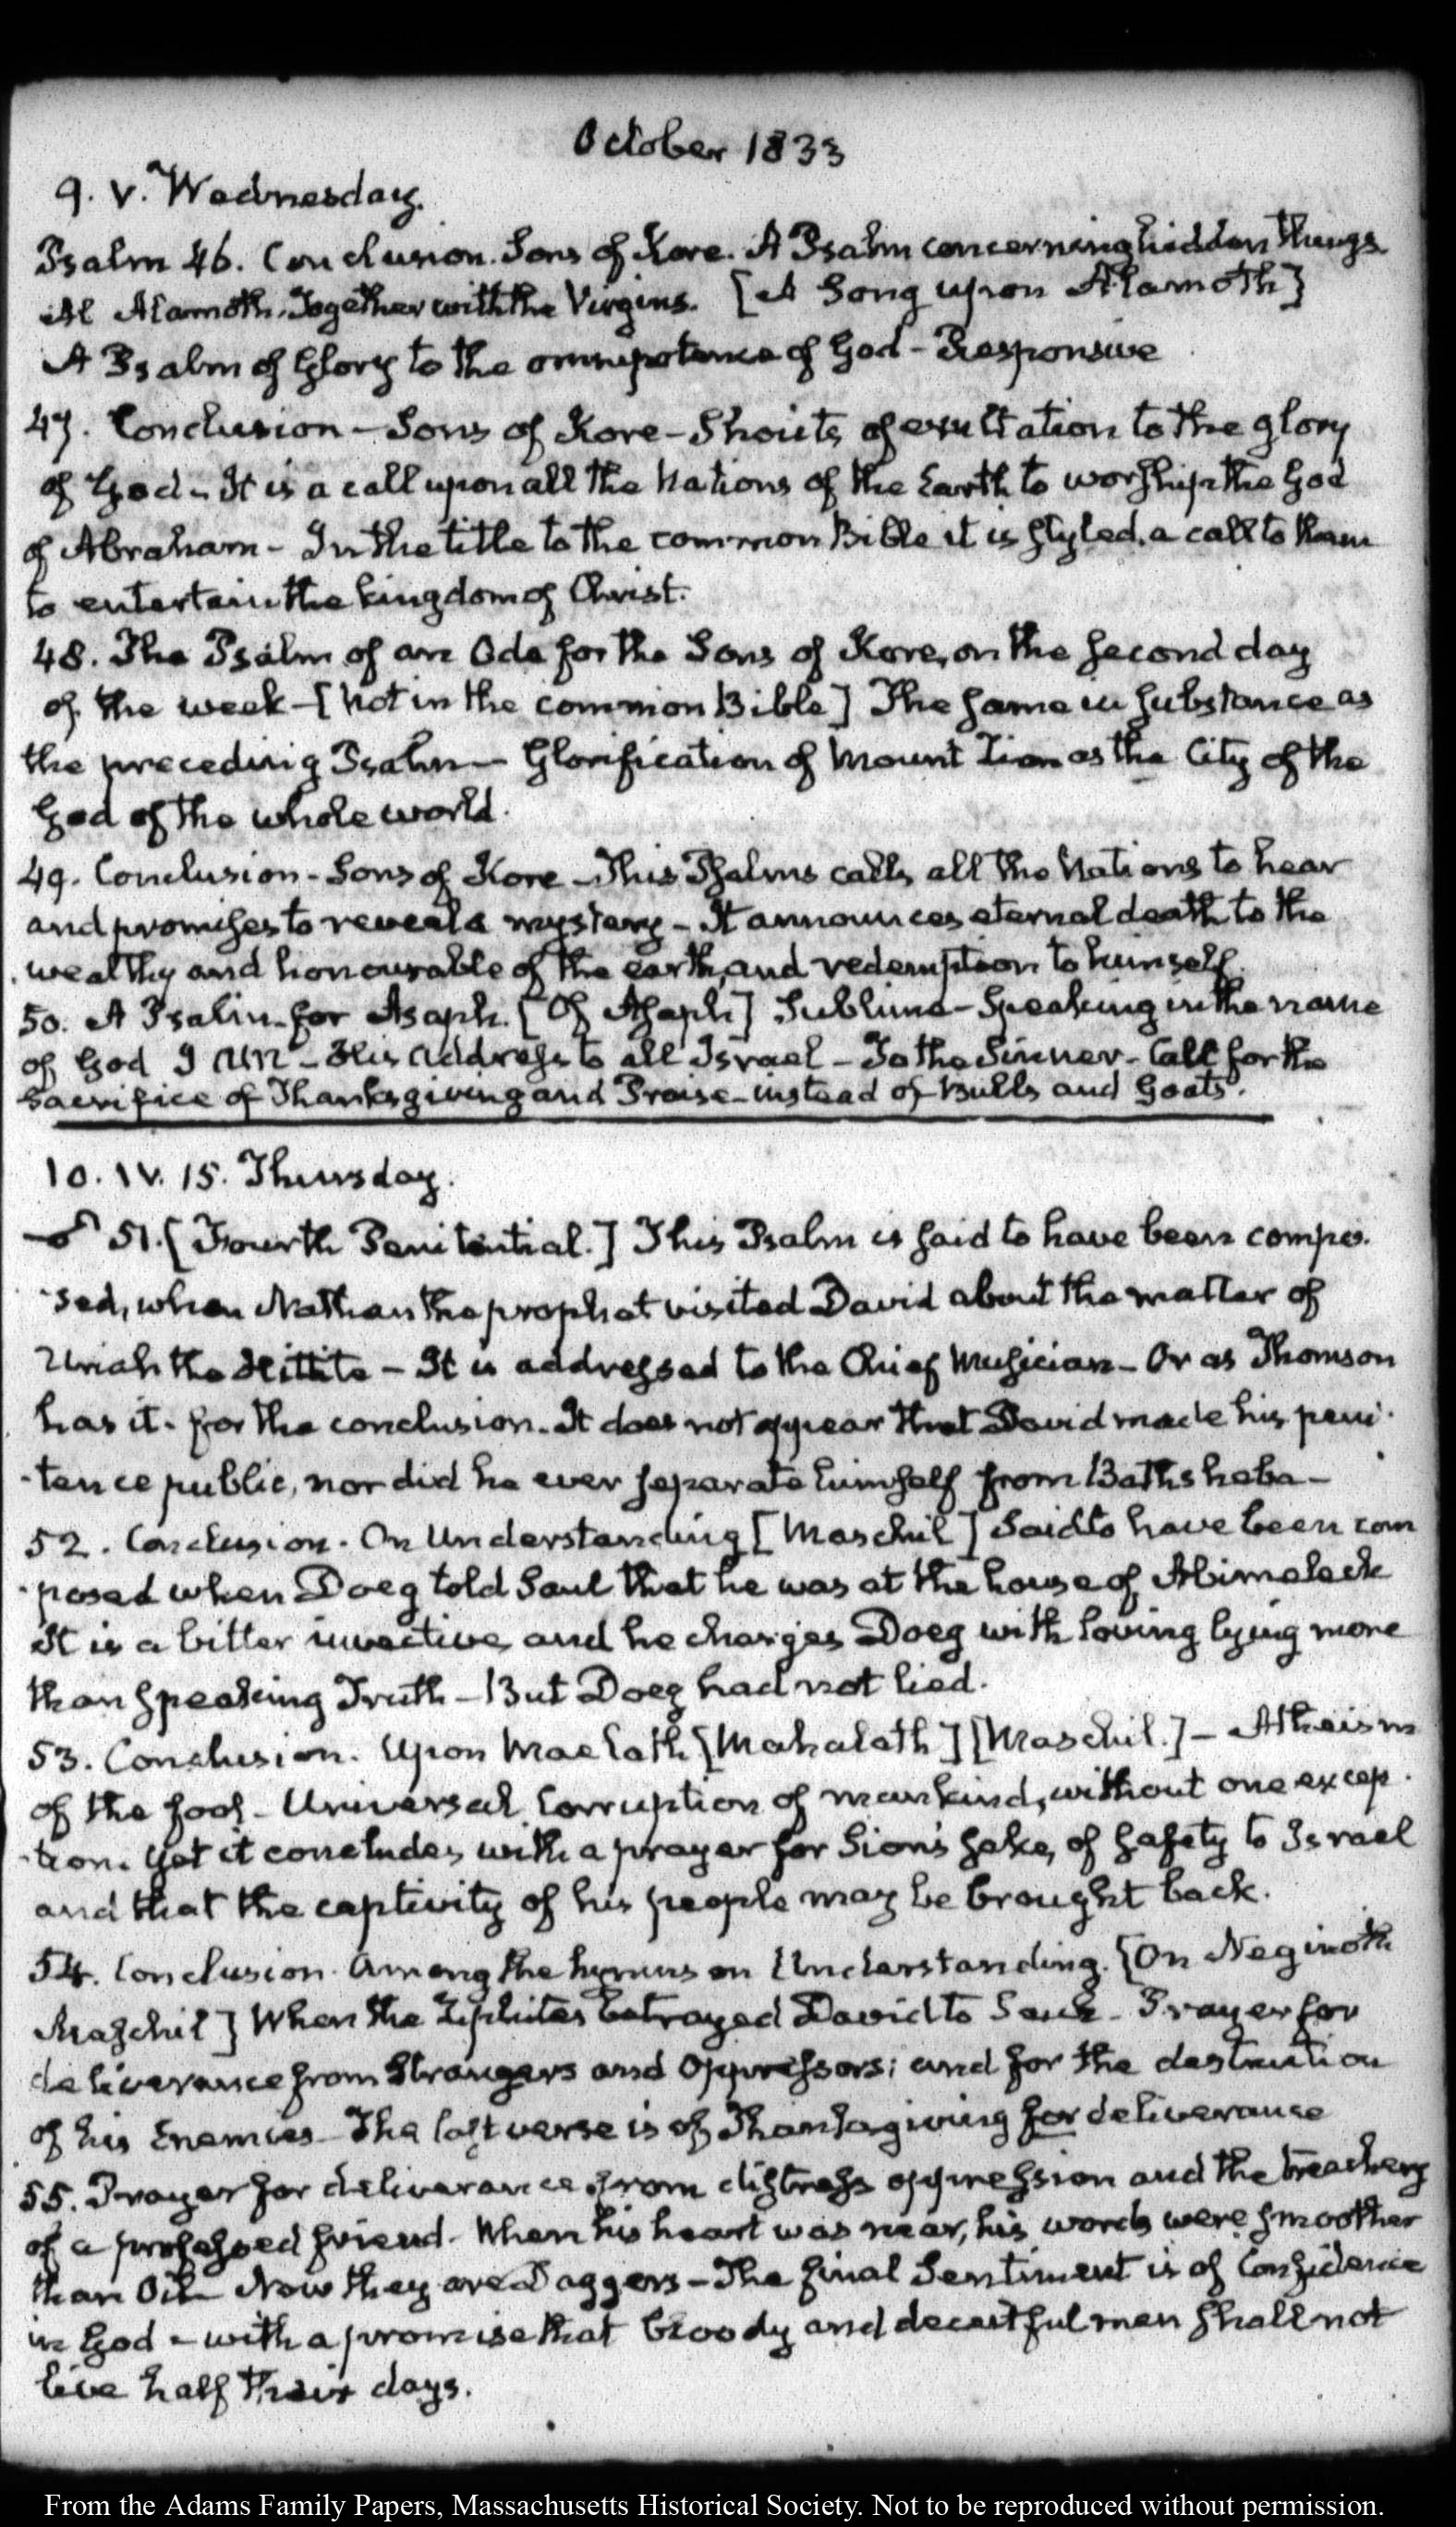 October 1833
9. V. Wednesday.
Psalm 46. Conclusion. Sons of Kore. A Psalm concerning hidden things.
Al Alamoth. Together with the Virgins. [A Song upon Alamoth]
A Psalm of Glory to the omnipotence of God - Responsive
47. Conclusion - Sons of Kore - Shouts of exultation to the glory
of God - It is a call upon all the Nations of the Earth to worship the God
of Abraham - In the title to the common Bible it is styled, a call to them
to entertain the kingdom of Christ.
48. The Psalm of an Ode for the Sons of Kore, on the second day
of the week - [not in the common Bible] The same in substance as
the preceding Psalm - Glorification of Mount Zion as the City of the
God of the whole world.
49. Conclusion - Sons of Kore - This Psalms calls all the Nations to hear
and promises to reveal a mystery - It announces eternal death to the
wealthy and honourable of the earth, and redemption to himself.
50. A Psalm for Asaph. [Of Asaph] Sublime - Speaking in the name
of God I AM - His address to all Israel - To the Sinner - Call for the
Sacrifice of Thanksgiving and Praise - instead of Bulls and Goats.
10. IV. 15. Thursday.
51. [Fourth Penitential.] This Psalm is said to have been compo-
-sed, when Nathan the prophet visited David about the matter of
Uriah the Hittite - It is addressed to the Chief Musician - Or as Thomson
has it - for the conclusion. It does not appear that David made his peni-
-tence public, nor did he ever separate himself from Bathsheba -
52. Conclusion. On Understanding [Maschil] Said to have been com
-posed when Doeg told Saul that he was at the house of Abimeleck
It is a bitter invective, and he charges Doeg with loving lying more
than speaking Truth - But Doeg had not lied.
53. Conclusion. Upon Maelath [Mahalath] [Maschil.] - Atheism
of the fool - Universal Corruption of mankind, without one excep-
-tion. Yet it concludes with a prayer for Sion's sake, of safety to Israel
and that the captivity of his people may be brought back.
54. Conclusion. Among the hymns on Understanding. [On Neginoth
Maschil] When the Ziphites betrayed David to Saul - Prayer for
deliverance from Strangers and Oppressors; and for the destruction
of his Enemies - The last verse is of Thanksgiving for deliverance
55. Prayer for deliverance from distress oppression and the treachery
of a professed friend - When his heart was near, his words were smoother
than Oil - Now they are Daggers - The final Sentiment is of Confidence
in God - with a promise that bloody and deceitful men shall not
live half their days.
From the Adams Family Papers, Massachusetts Historical Society. Not to be reproduced without permission.